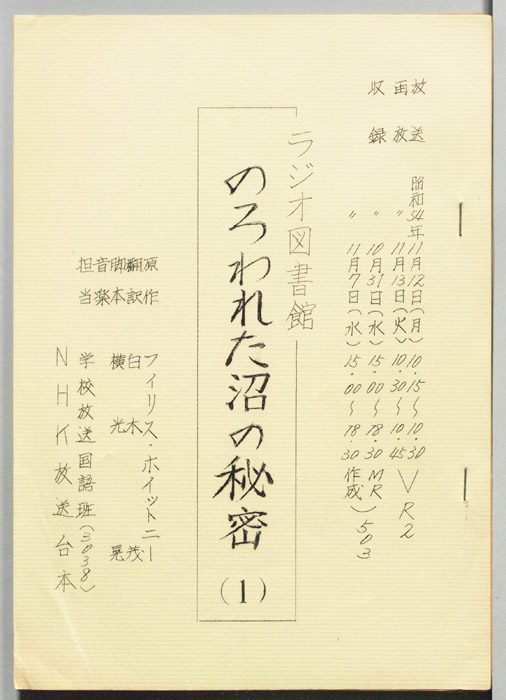 放送 昭和54年11月12日(月) 10.15～10.30
再放 〃 11月13日(火) 10.30～10.45
VR2
収録 〃 10月31日(水) 15.00～18.30 MR
〃 11月7日(水) 15.00～18.30 作成
503
ラジオ図書館
のろわれた沼の秘密(1)
原作 フィリス・ホイットニー
翻訳 白木 茂
脚本 横光 晃
音楽
担当 学校放送国語班(3038)
NHK放送台本